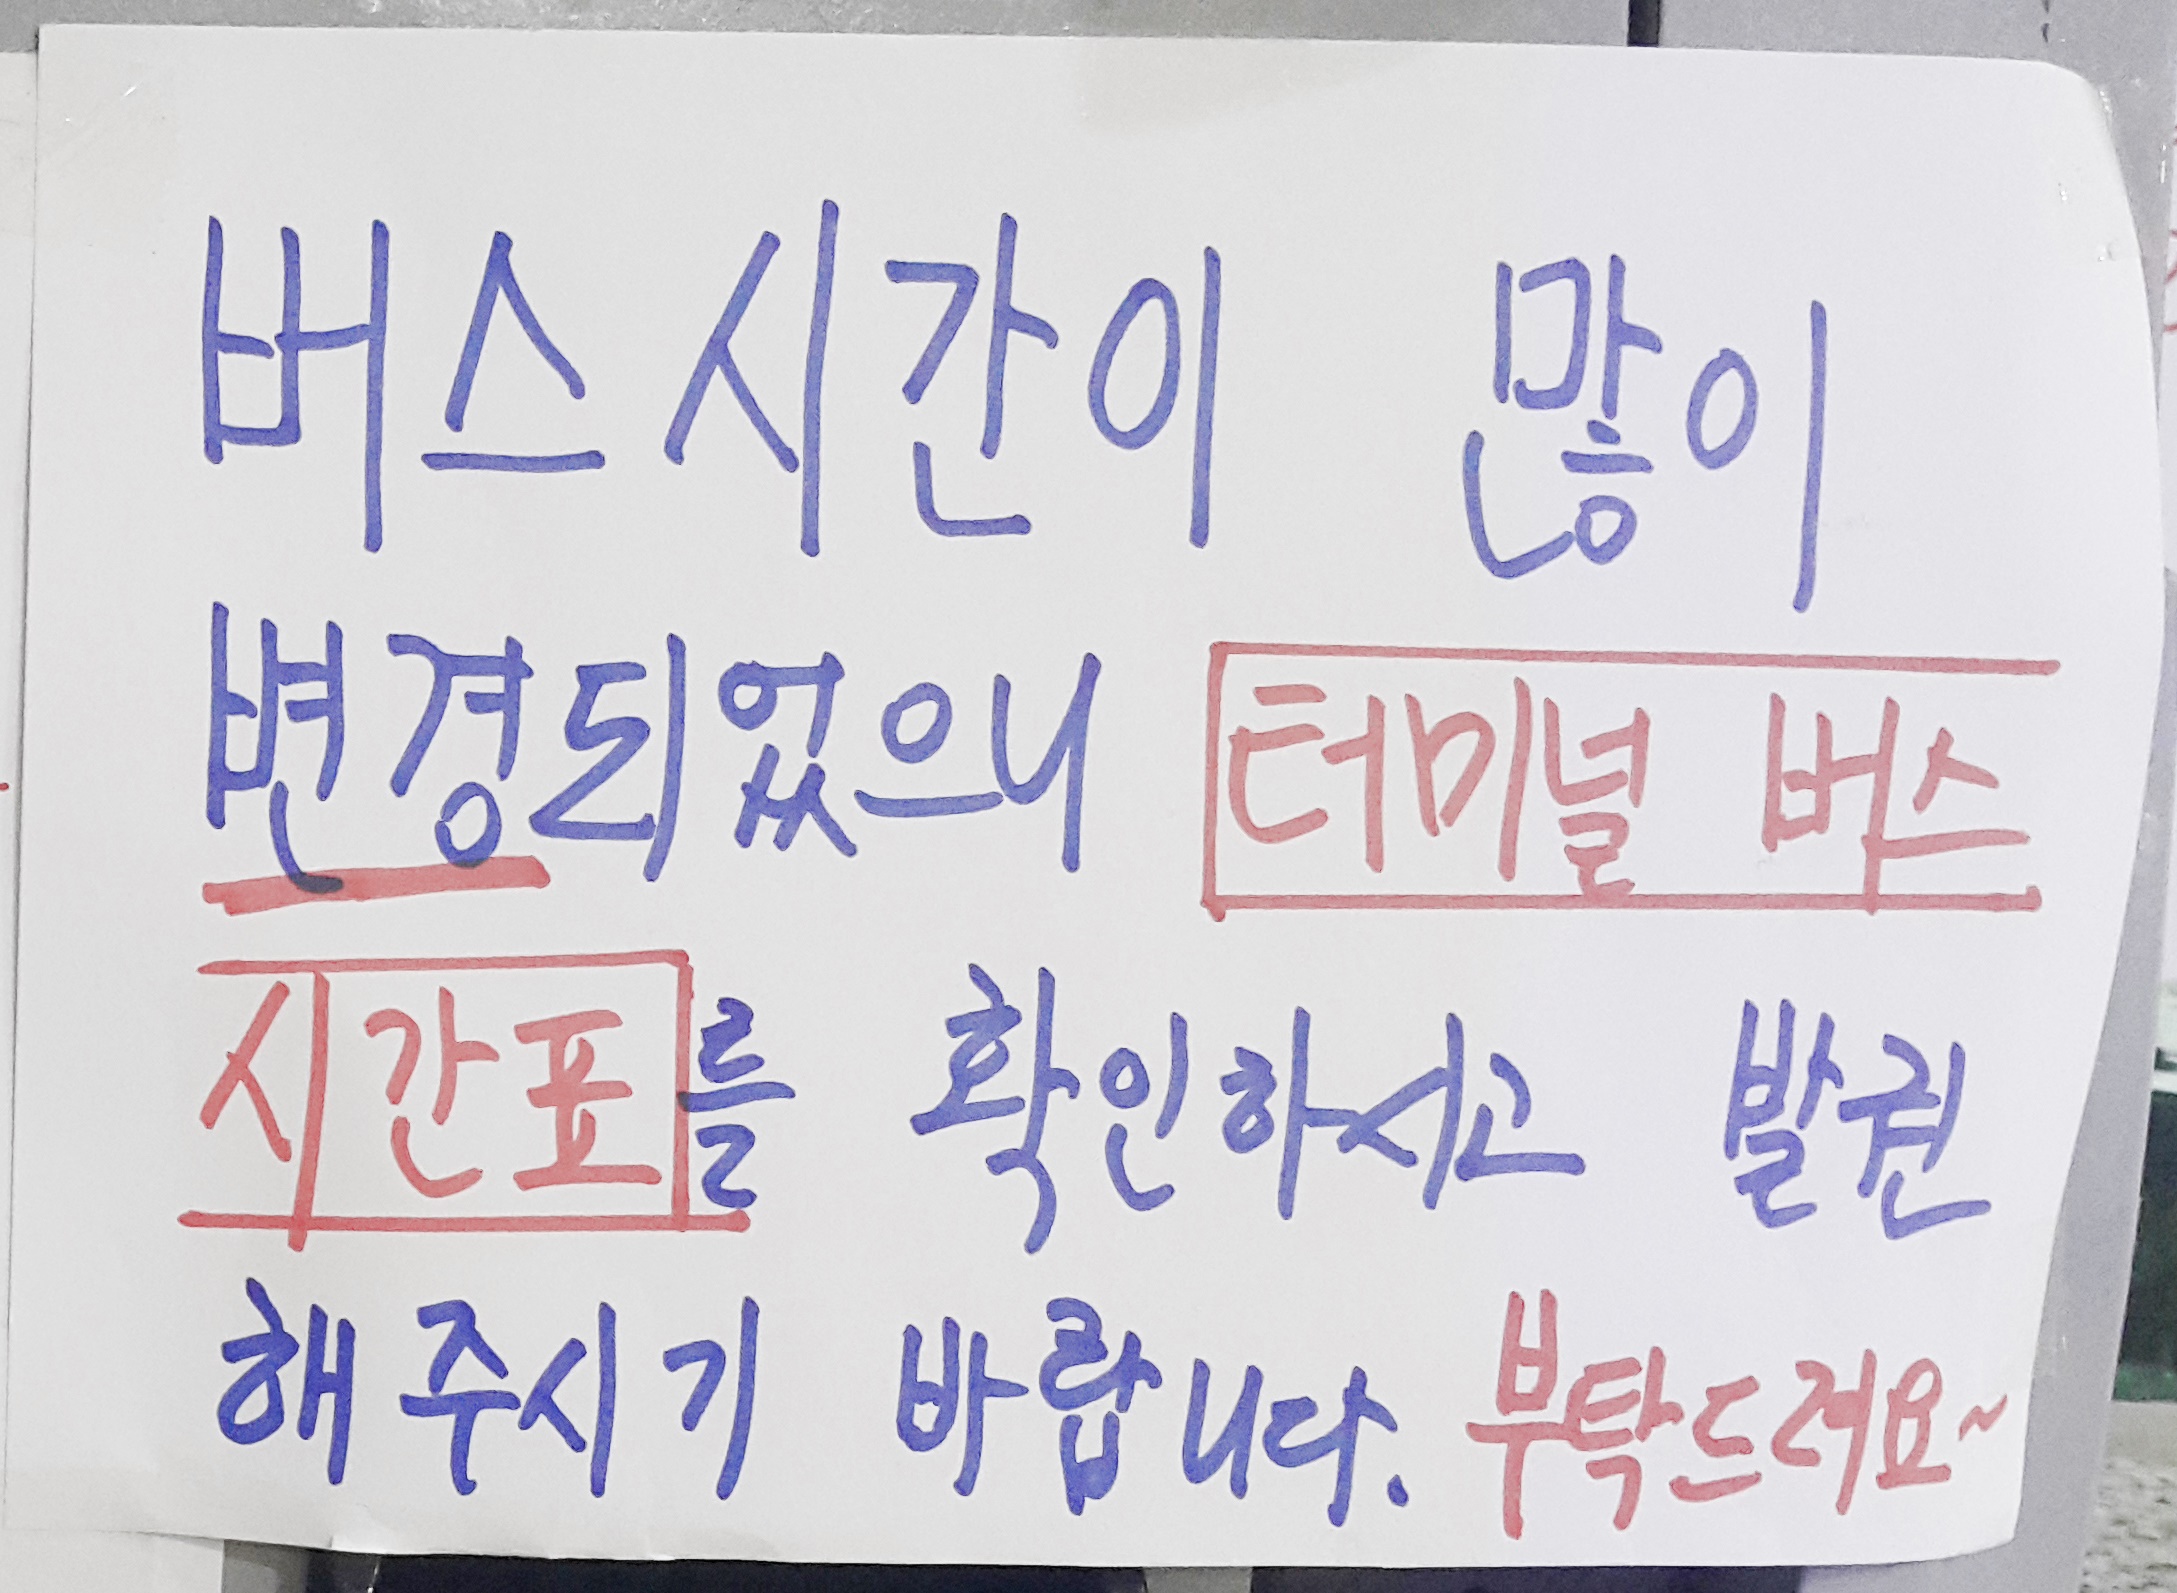 버스시간이 많이
변경되었으니 터미널 버스
시간표를 확인하서고 발권
해주시기 바랍니다. 부탁드려요~